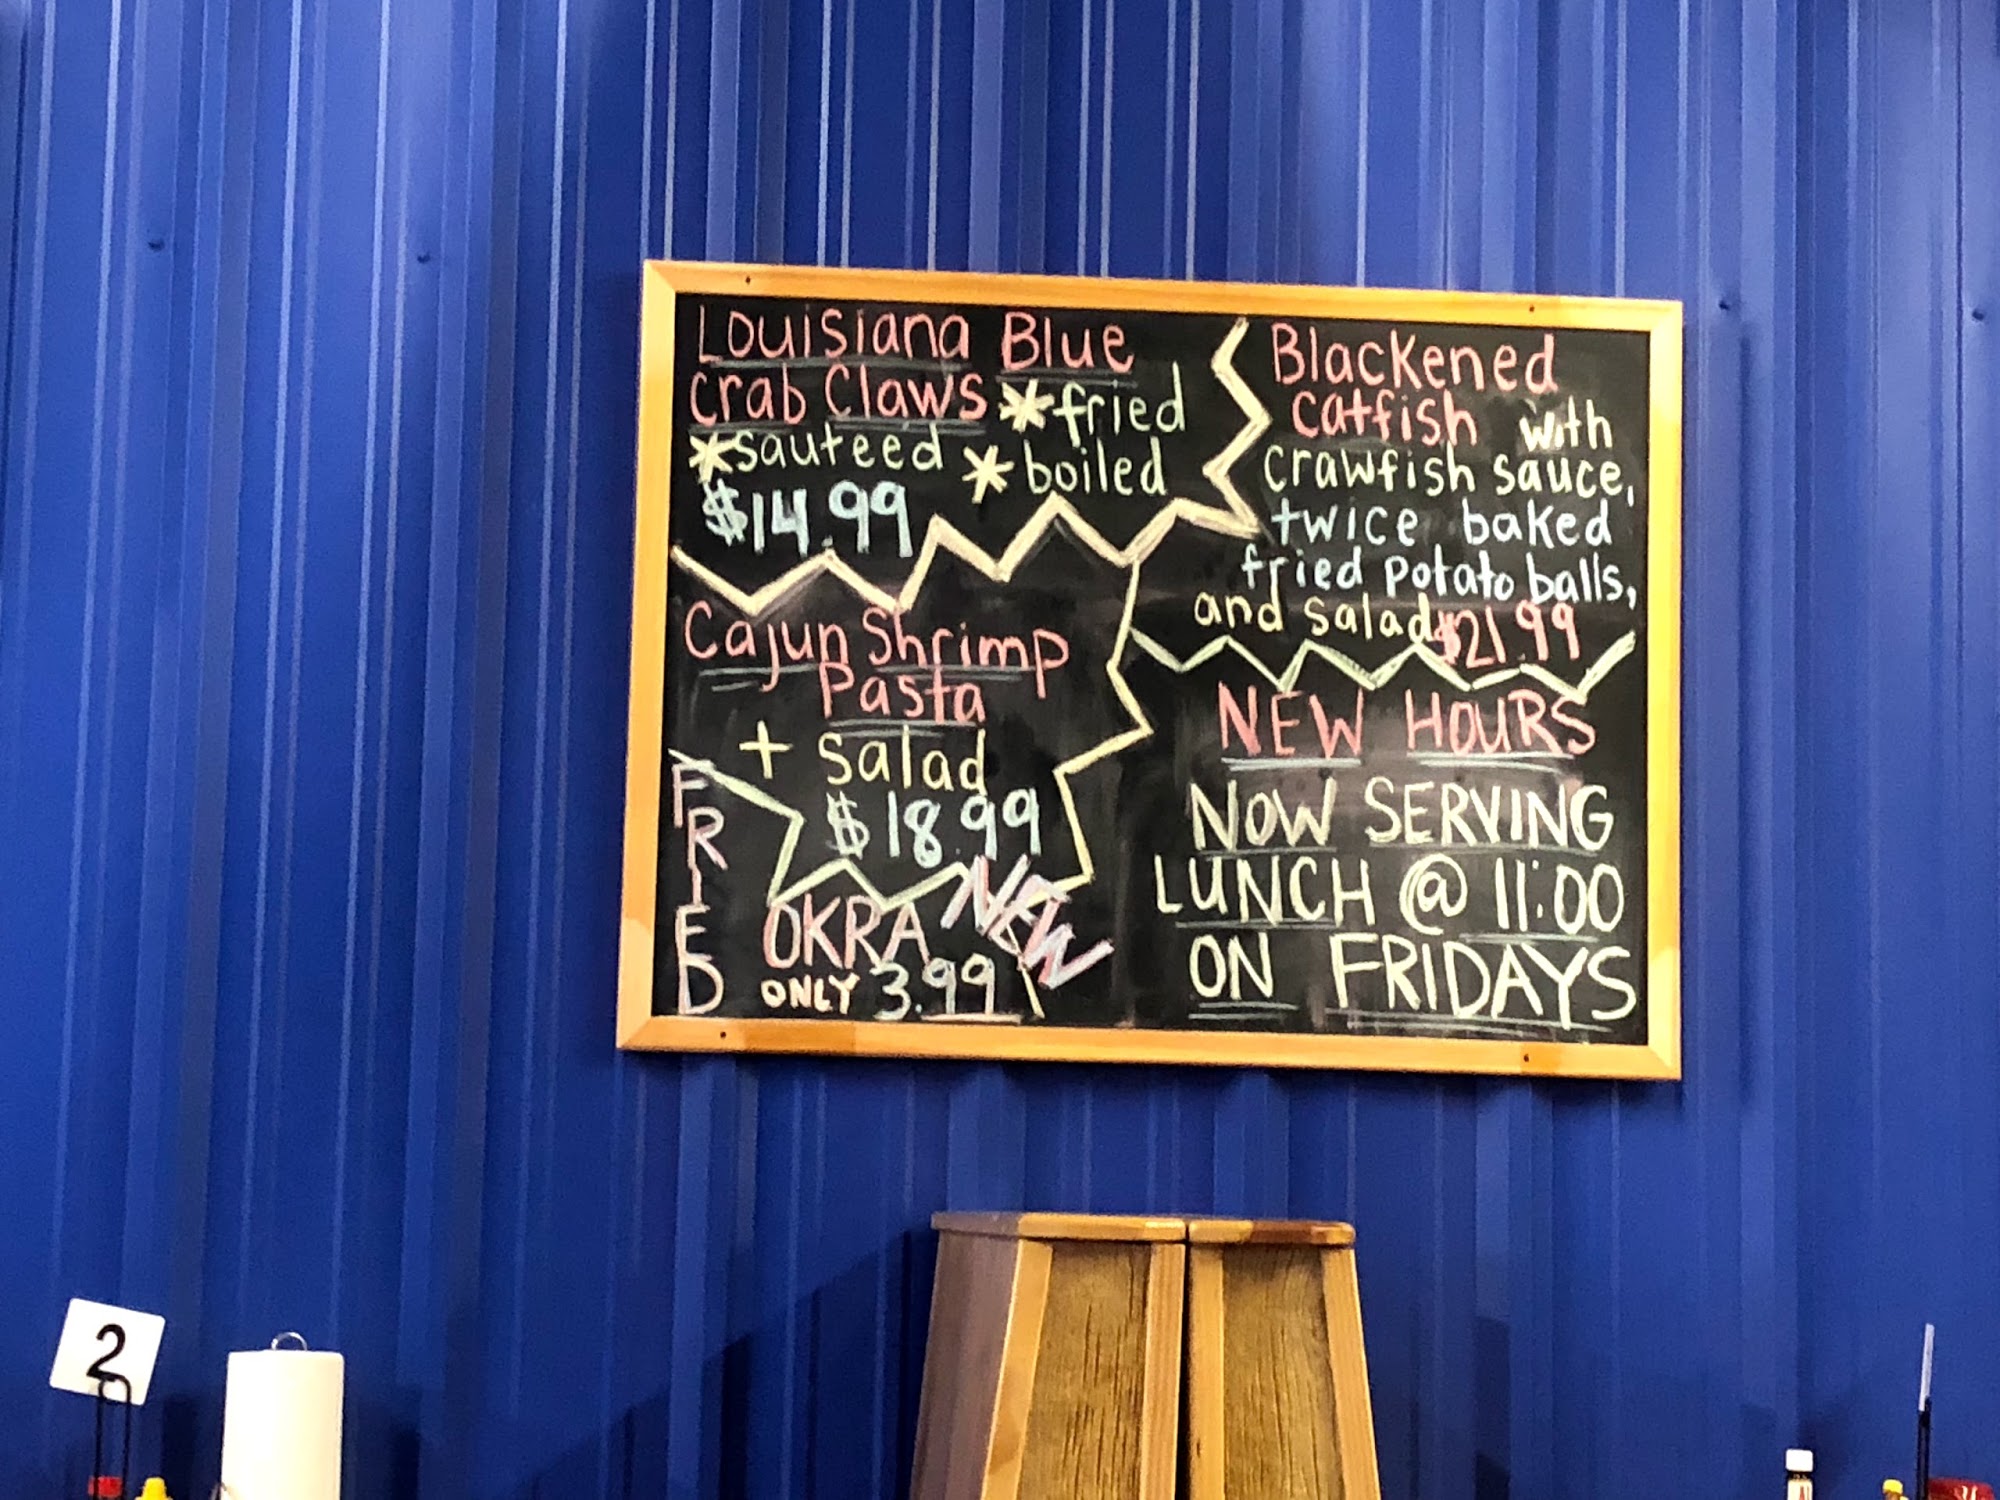 Louisiana Blue
Crab Claws *fried
*sauteed *boiled
$14.99
Blackened
catfish with
crawfish sauce,
twice baked
fried potato balls,
and salad $21.99
Cajun Shrimp
Pasta
+ salad
$18.99
FRIED
OKRA NEW
ONLY 3.99
NEW HOURS
NOW SERVING
LUNCH @ 11:00
ON FRIDAYS
2